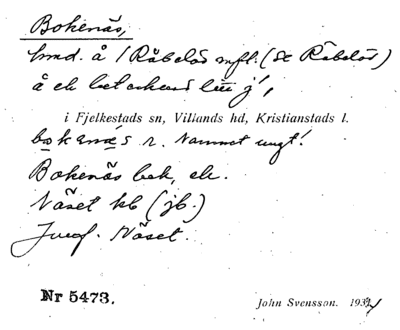 Bokenäs,
hmd. å 1 Råbelöv mfl. (se Råbelöv)
å ek
i Fjelkestads sn, Villands hd, Kristianstads l.
bokenäs r. Namnet ungt!
Bokenäs bok, ek.
Näset kb (jb.)
Jmf. Näset.
Nr 5473.
John Svensson. 193